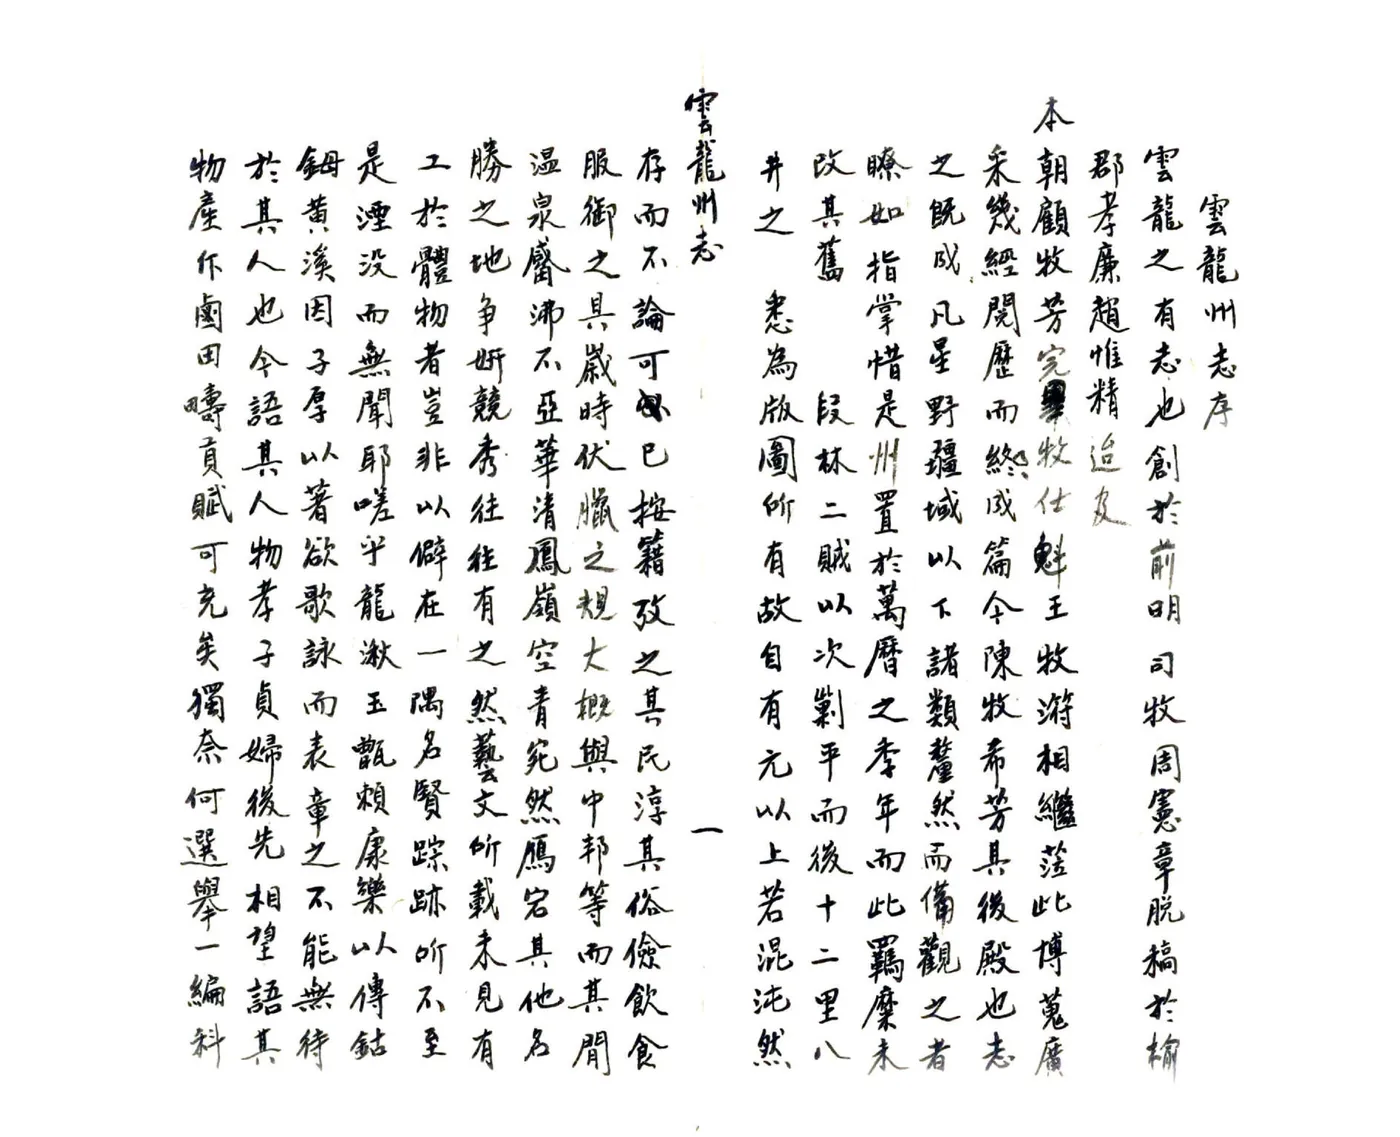 雲龍州志序
雲龍之有志也創於前明司牧周憲章脱稿於榆
郡孝廉趙惟精迨及
本朝顧牧芳完牧仕魁王牧㳺相繼蒞此博蒐廣
采幾經閱歷而終成篇今陳牧希芳其後殿也志
之既成凡星野疆域以下諸類釐然而備觀之者
瞭如指掌惜是州置於萬曆之季年而此羈縻未
改其舊 段林二賊以次剿平而後十二里八
井之 悉為版圖所有故自有元以上若混沌然
雲龍州志
一
存而不論可已按籍攷之其民淳其俗儉飲食
服御之具歲時伏臘之規大概與中邦等而其間
温泉觱沸不亞華清鳳嶺空青宛然鴈宕其他名
勝之地争妍競秀往往有之然藝文所載未見有
工於體物者豈非以僻在一隅名賢踪跡所不至
是湮没而無聞耶嗟乎龍湫玉甑賴康樂以傳鈷
鉧黄溪因子厚以著欲歌詠而表章之不能無待
於其人也今語其人物孝子貞婦後先相望語其
物産作鹵田疇貢賦可充矣獨奈何選舉一編科